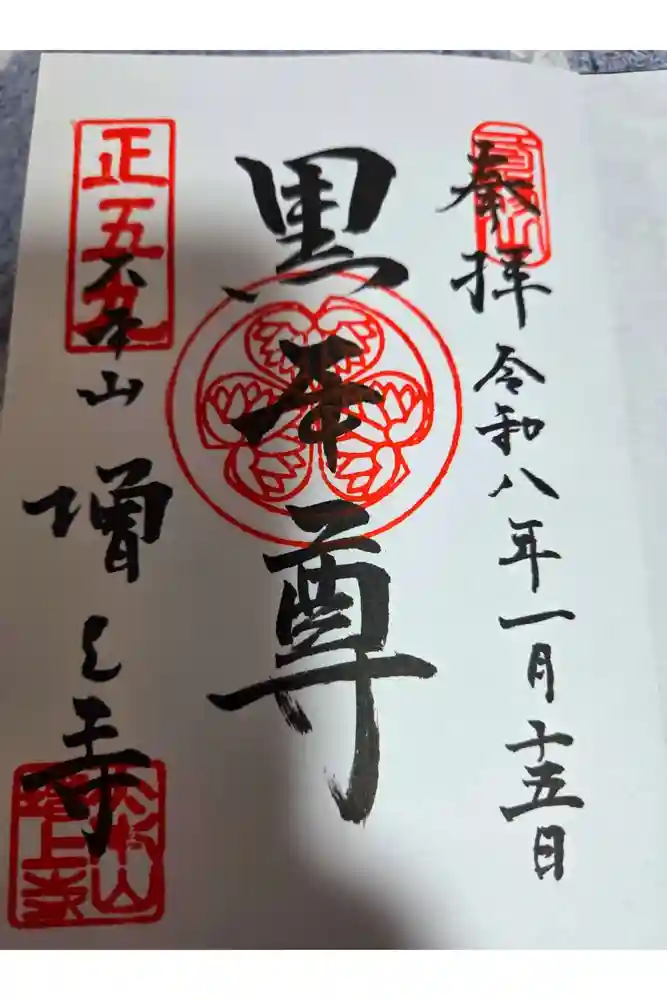 三縁山
奉拝 令和八年一月十五日
黒本尊
正五九
大本山 増上寺
大本山
増上寺